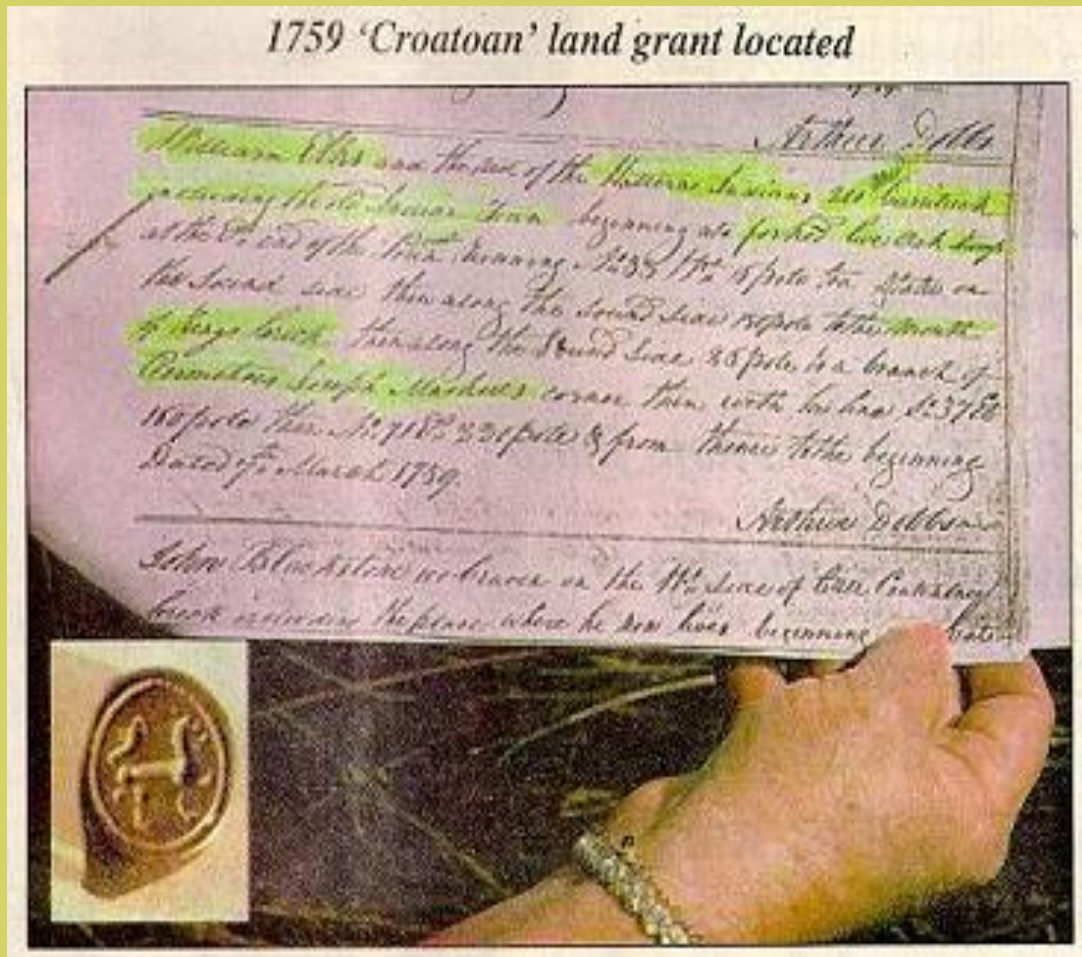 1759 ‘Croatoan’ land grant located
Arthur Dobbs
William Elks and the rest of the Hatteras Indians 200 Currituck
including the old Indian Town beginning at a forked live oak
at the Et. end of the Town running No. 38 Wt. 15 pole to a Stake on
the Sound side then along the Sound side 150 pole to the Mouth
of Kings Creek then along the Sound Side 85 pole to a branch of
Joseph Mashues corner then with his line
160 pole then 220 pole & from thence to the beginning
Dated 7th March 1759.
Arthur Dobbs
John Blackstone on the Wt. Side of
Creek including the place where he now lives beginning